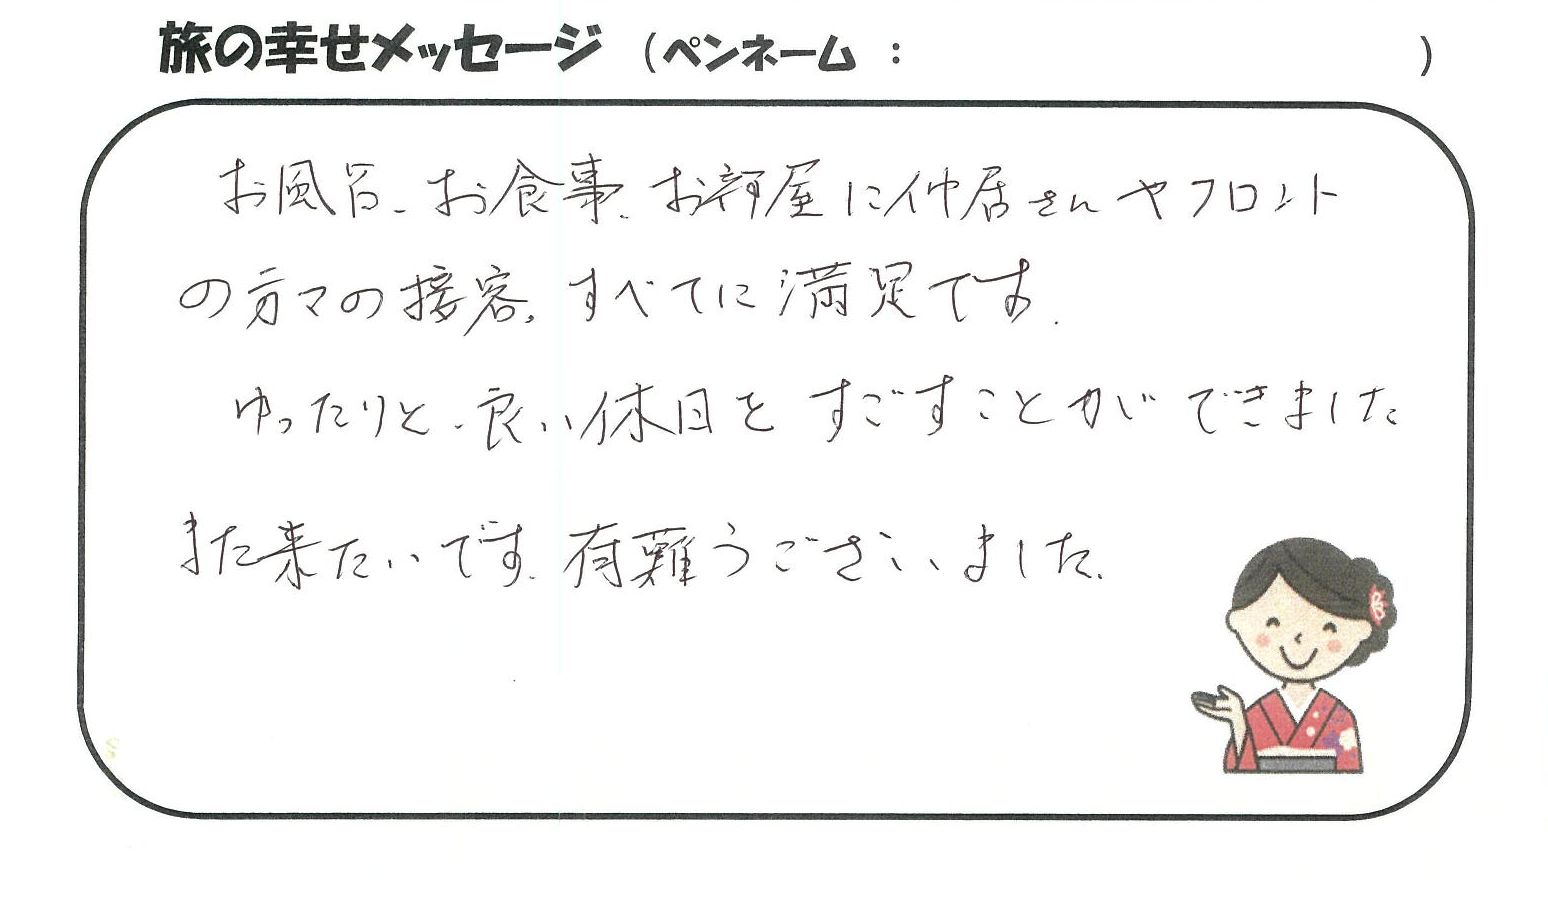 旅の幸せメッセージ （ペンネーム ： ）
お風呂、お食事、お部屋に仲居さんやフロント
の方々の接客、すべてに満足です。
ゆったりと、良い休日をすごすことができました
また来たいです。有難うございました。